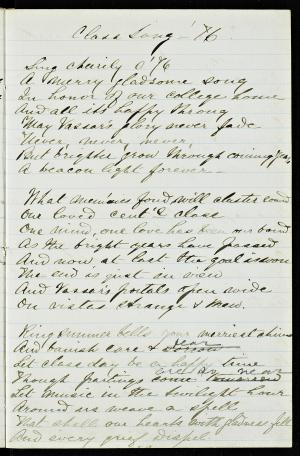 Class Song - '76.
Sing charity O '76
A merry gladsome song
In honor of our college home
And all its happy throng
May Vassar's glory never fade
Never, never, never,
But brighter grow through coming years
A beacon light forever -
What mem'ries fond will cluster round
Our loved cent'l class
One mind, one love has been our bond
As the bright years have passed
And now, at last the goal is won
The end is just in view
And Vassar's portals open wide
On vistas strange & new.
Ring summer bells your merriest chime
And banish care & fear
Let class day be a happy time
Though partings come
Let music in the twilight hour
Around us weave a spell
That shall our hearts with gladness fill
And every grief dispel.